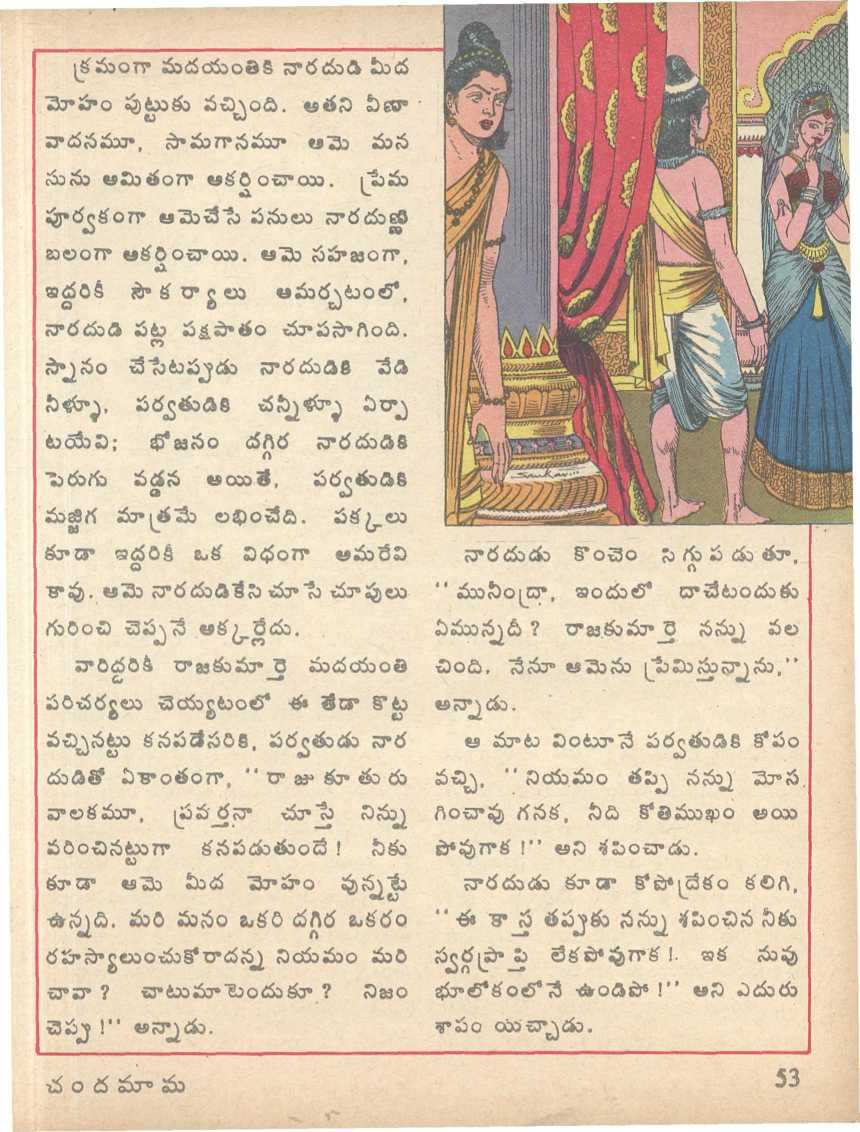 క్రమంగా మదయంతికి నారదుడి మీద
మోహం పుట్టుకు వచ్చింది. అతని వీణా
వాదనమూ, సామగానమూ ఆమె మన
సును అమితంగా ఆకర్షించాయి. ప్రేమ
పూర్వకంగా ఆమెచేసే పనులు నారదుణ్ణి
బలంగా ఆకర్షించాయి. ఆమె సహజంగా,
ఇద్దరికీ సౌకర్యాలు అమర్చటంలో,
నారదుడి పట్ల పక్షపాతం చూపసాగింది.
స్నానం చేసేటప్పుడు నారదుడికి వేడి
నీళ్ళూ, పర్వతుడికి చన్నీళ్ళూ ఏర్పా
టయేవి; భోజనం దగ్గిర నారదుడికి
పెరుగు వడ్డన అయితే, పర్వతుడికి
మజ్జిగ మాత్రమే లభించేది. పక్కలు
కూడా ఇద్దరికీ ఒక విధంగా అమరేవి
కావు. ఆమె నారదుడికేసి చూసే చూపులు
గురించి చెప్పనే అక్కర్లేదు.
వారిద్దరికీ రాజకుమార్తె మదయంతి
పరిచర్యలు చెయ్యటంలో ఈ తేడా కొట్ట
వచ్చినట్టు కనపడేసరికి, పర్వతుడు నార
దుడితో ఏకాంతంగా, "రాజు కూతురు
వాలకమూ, ప్రవర్తనా చూస్తే నిన్ను
వరించినట్టుగా కనపడుతుందే! నీకు
కూడా ఆమె మీద మోహం వున్నట్టే
ఉన్నది. మరి మనం ఒకరి దగ్గిర ఒకరం
రహస్యాలుంచుకోరాదన్న నియమం మరి
చావా? చాటుమాటెందుకూ? నిజం
చెప్పు!" అన్నాడు.
Sankar...
నారదుడు కొంచెం సిగ్గుపడుతూ,
"మునీంద్రా, ఇందులో దాచేటందుకు
ఏమున్నదీ? రాజకుమార్తె నన్ను వల
చింది. నేనూ ఆమెను ప్రేమిస్తున్నాను,"
అన్నాడు.
ఆ మాట వింటూనే పర్వతుడికి కోపం
వచ్చి, "నియమం తప్పి నన్ను మోస
గించావు గనక, నీది కోతిముఖం అయి
పోవుగాక!" అని శపించాడు.
నారదుడు కూడా కోపోద్రేకం కలిగి,
"ఈ కాస్త తప్పుకు నన్ను శపించిన నీకు
స్వర్గప్రాప్తి లేకపోవుగాక! ఇక నువు
భూలోకంలోనే ఉండిపో!" అని ఎదురు
శాపం యిచ్చాడు.
చందమామ
53